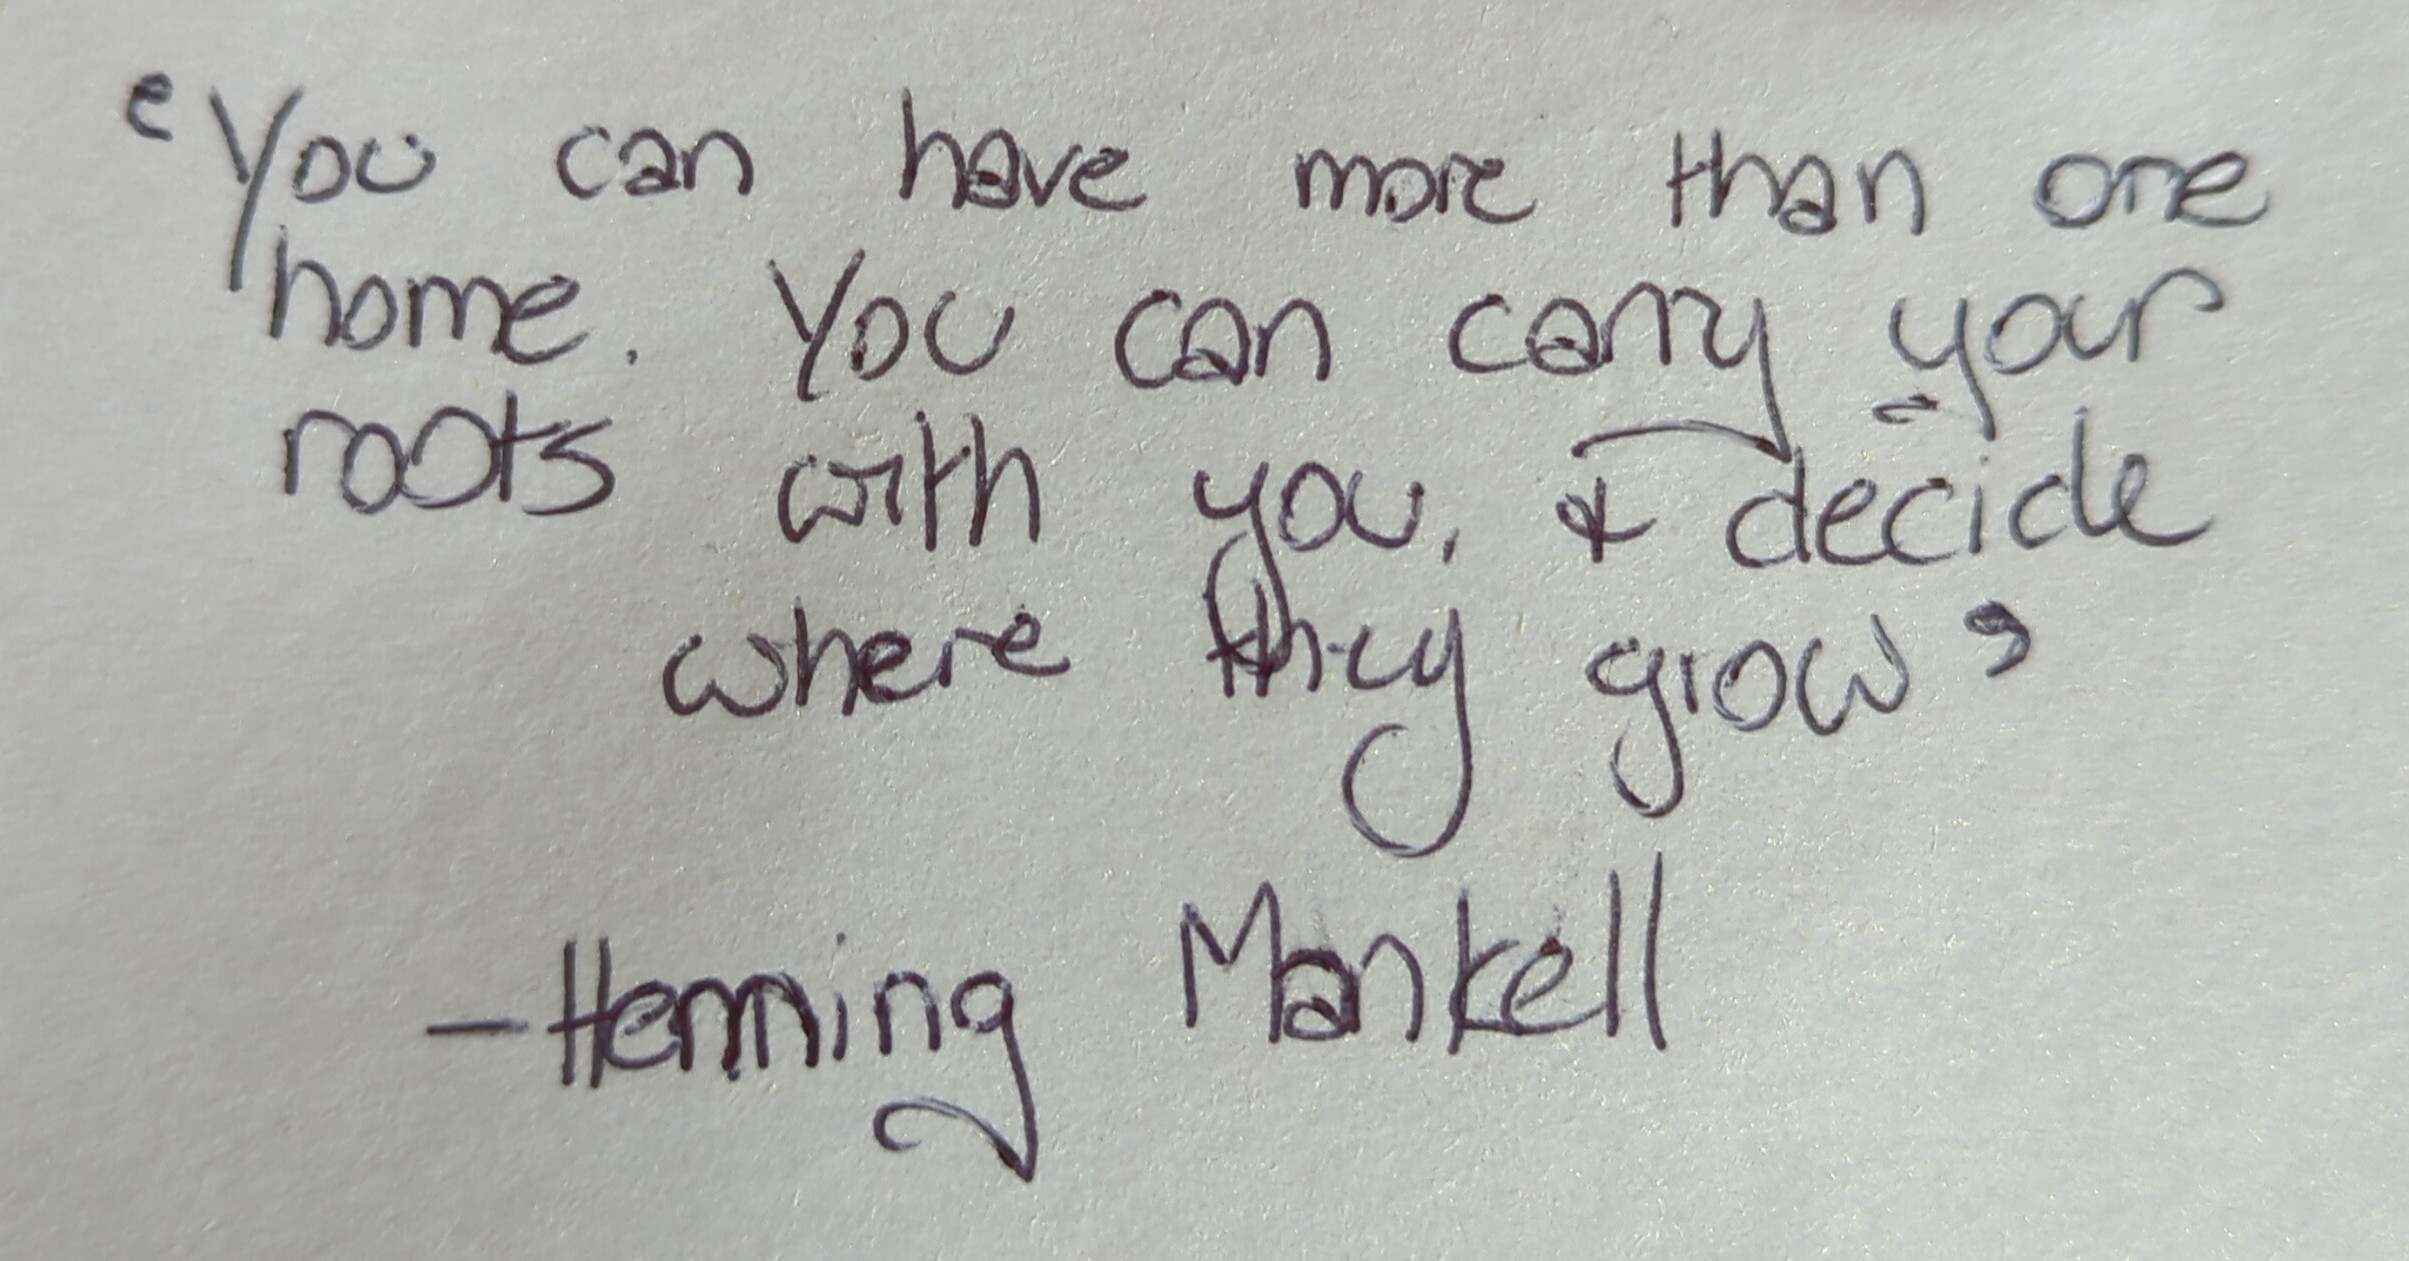 ‘You can have more than one
home. You can carry your
roots with you, & decide
where they grow’
- Henning Mankell